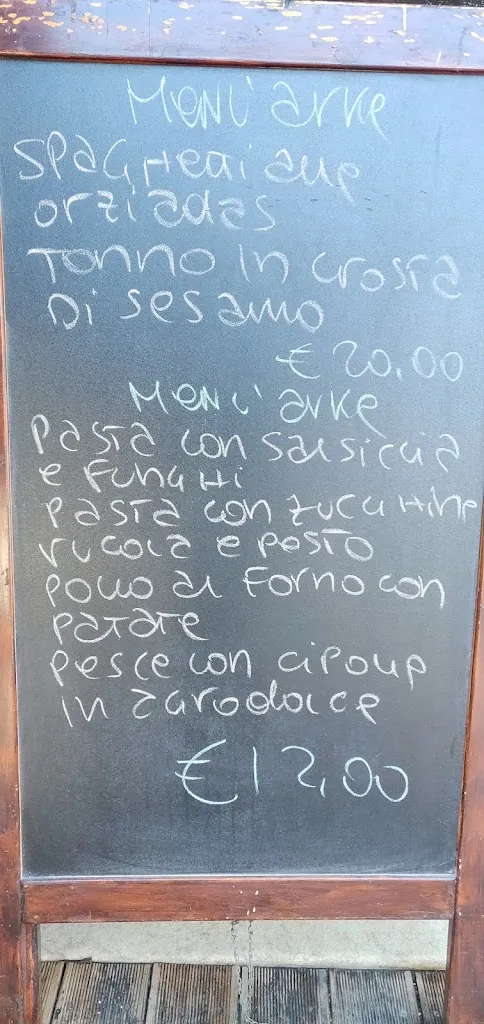 MENU' ARKE
SPAGHETTI ALLE
ORZIADAS
TONNO IN CROSTA
DI SESAMO
€ 20,00
MENU' ARKE
PASTA CON SALSICCIA
E FUNGHI
PASTA CON ZUCCHINE
RUCOLA E PESTO
POLLO AL FORNO CON
PATATE
PESCE CON CIPOLLE
IN AGRODOLCE
€ 12,00